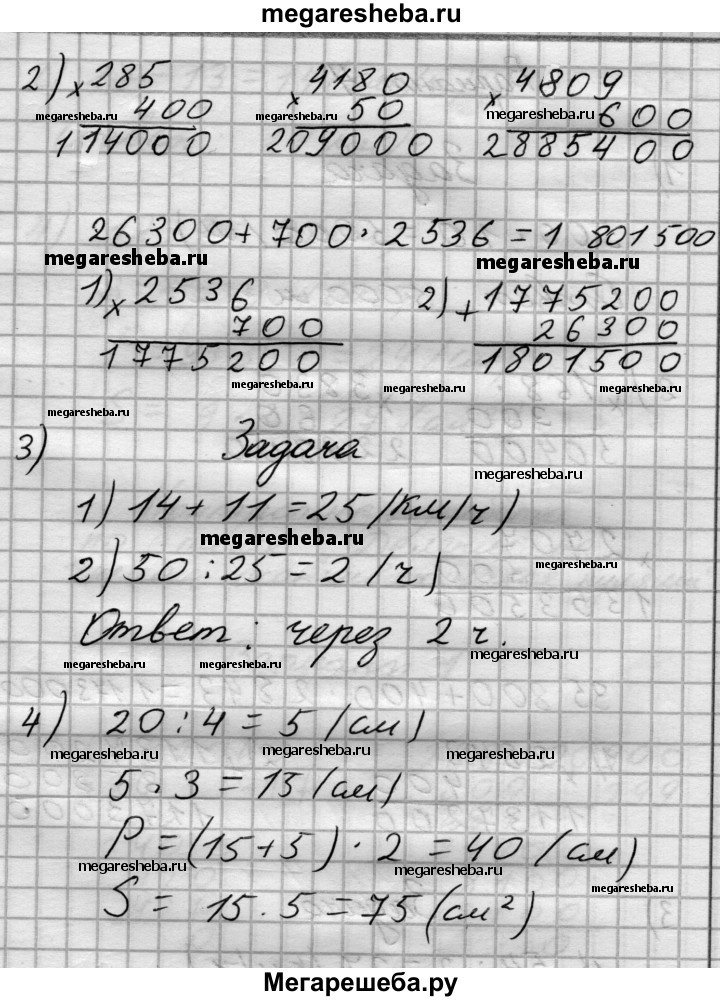 megaresheba.ru
2) × 285 × 4180 × 4809
400 50 600
megaresheba.ru megaresheba.ru megaresheba.ru
114000 209000 2885400
26300 + 700 · 2536 = 1 801500
megaresheba.ru megaresheba.ru
1) × 2536 2) + 1775200
700 26300
1775200 1801500
megaresheba.ru megaresheba.ru
megaresheba.ru
3) Задача
megaresheba.ru
1) 14 + 11 = 25 (км/ч)
megaresheba.ru
2) 50 : 25 = 2 (ч)
megaresheba.ru
Ответ: через 2 ч.
megaresheba.ru megaresheba.ru megaresheba.ru
4) 20 : 4 = 5 (см)
megaresheba.ru megaresheba.ru megaresheba.ru
5 · 3 = 15 (см)
P = (15 + 5) · 2 = 40 (см)
megaresheba.ru megaresheba.ru
megaresheba.ru
S = 15 · 5 = 75 (см²)
Мегарешеба.ру